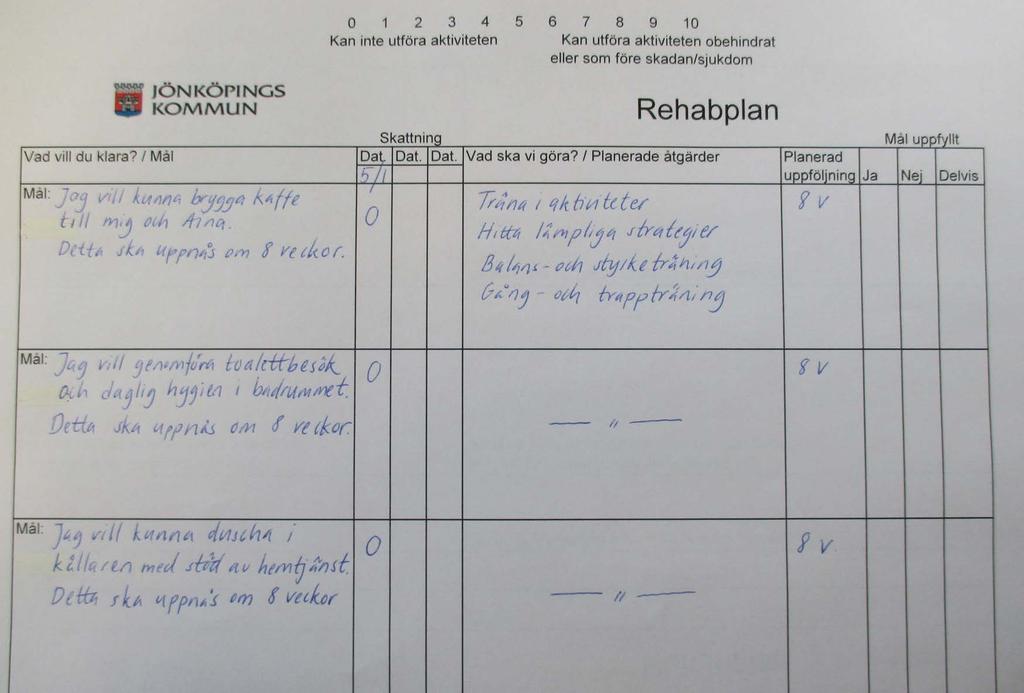 0 1 2 3 4 5 6 7 8 9 10
Kan inte utföra aktiviteten
Kan utföra aktiviteten obehindrat
eller som före skadan/sjukdom
JÖNKÖPINGS
KOMMUN
Rehabplan
Skattning
Mål uppfyllt
Vad vill du klara? / Mål
Dat. Dat. Dat.
Vad ska vi göra? / Planerade åtgärder
Planerad
uppföljning
Ja
Nej
Delvis
5/1
Mål: Jag vill kunna brygga kaffe
till mig och Aina.
Detta ska uppnås om 8 veckor.
0
Träna i aktiviteter
Hitta lämpliga strategier
Balans- och styrketräning
Gång- och trappträning
8 v
Mål: Jag vill genomföra toalettbesök
och daglig hygien i badrummet.
Detta ska uppnås om 8 veckor.
0
— " —
8 v
Mål: Jag vill kunna duscha i
källaren med stöd av hemtjänst.
Detta ska uppnås om 8 veckor
0
— " —
8 v.